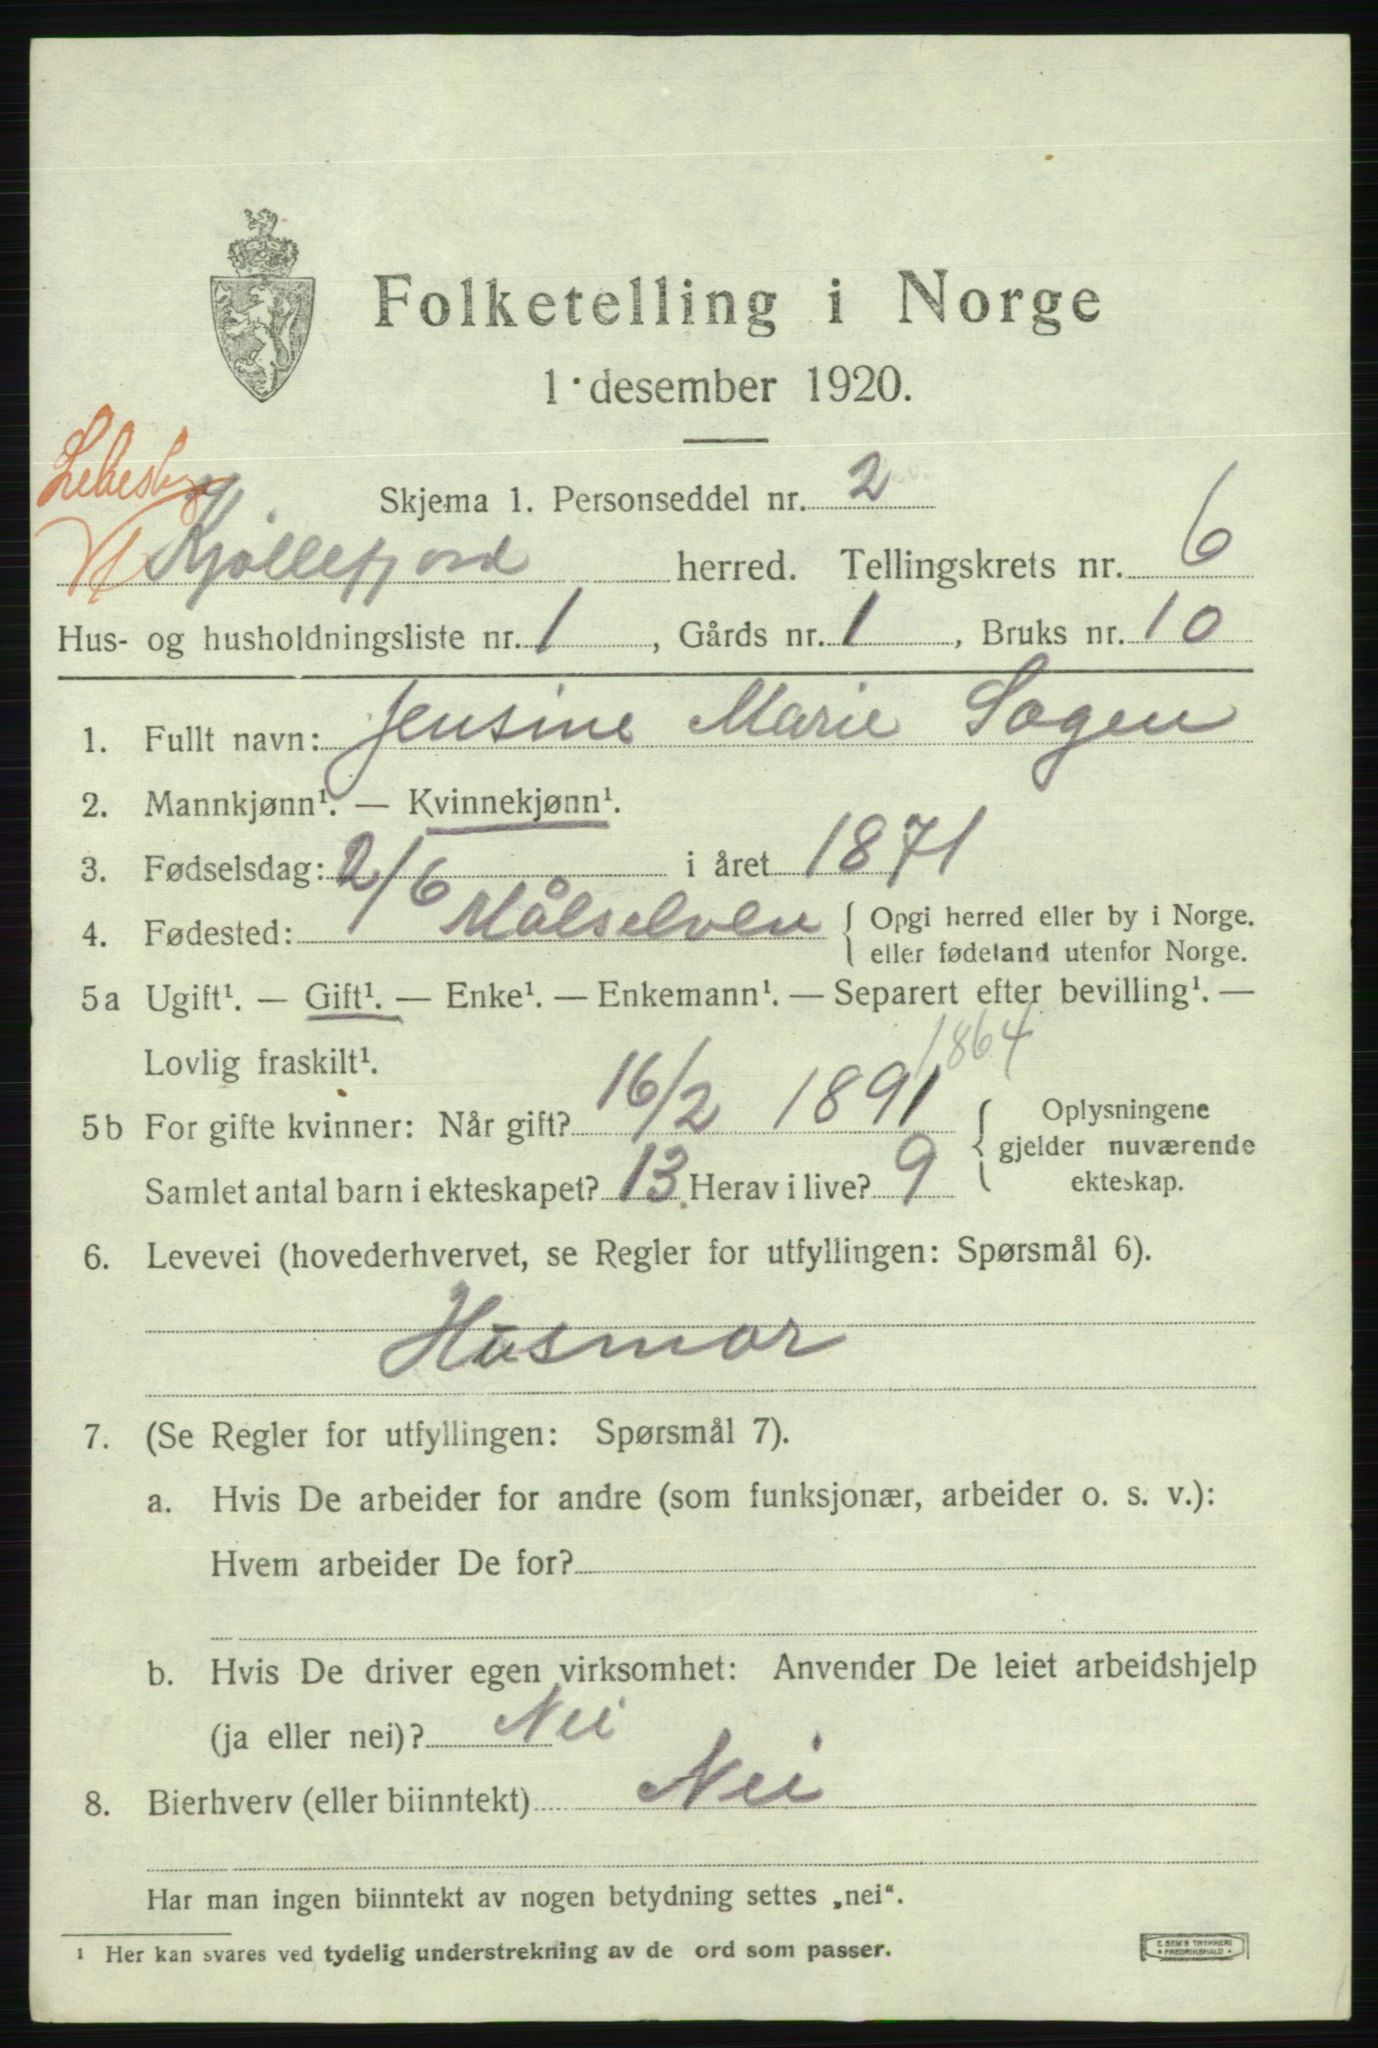 Folketelling i Norge
1. desember 1920.
Lebesby
Skjema 1. Personseddel nr. 2
Kjøllefjord herred. Tellingskrets nr. 6
Hus- og husholdningsliste nr. 1, Gårds nr. 1, Bruks nr. 10
1. Fullt navn: Jensine Marie Sagen
2. Mannkjønn¹. — Kvinnekjønn¹.
3. Fødselsdag: 2/6 i året 1871
4. Fødested: Målselven { Opgi herred eller by i Norge.
eller fødeland utenfor Norge.
5a Ugift¹. — Gift¹. — Enke¹. — Enkemann¹. — Separert efter bevilling¹. —
Lovlig fraskilt¹.
1864
5b For gifte kvinner: Når gift? 16/2 1891 { Oplysningene
gjelder nuværende
ekteskap.
Samlet antal barn i ekteskapet? 13. Herav i live? 9
6. Levevei (hovederhvervet, se Regler for utfyllingen: Spørsmål 6).
Husmor
7. (Se Regler for utfyllingen: Spørsmål 7).
a. Hvis De arbeider for andre (som funksjonær, arbeider o. s. v.):
Hvem arbeider De for?
b. Hvis De driver egen virksomhet: Anvender De leiet arbeidshjelp
(ja eller nei)? Nei
8. Bierhverv (eller biinntekt) Nei
Har man ingen biinntekt av nogen betydning settes „nei“.
¹ Her kan svares ved tydelig understrekning av de ord som passer.
E. SEM'S TRYKKERI
• FREDRIKSHALD •